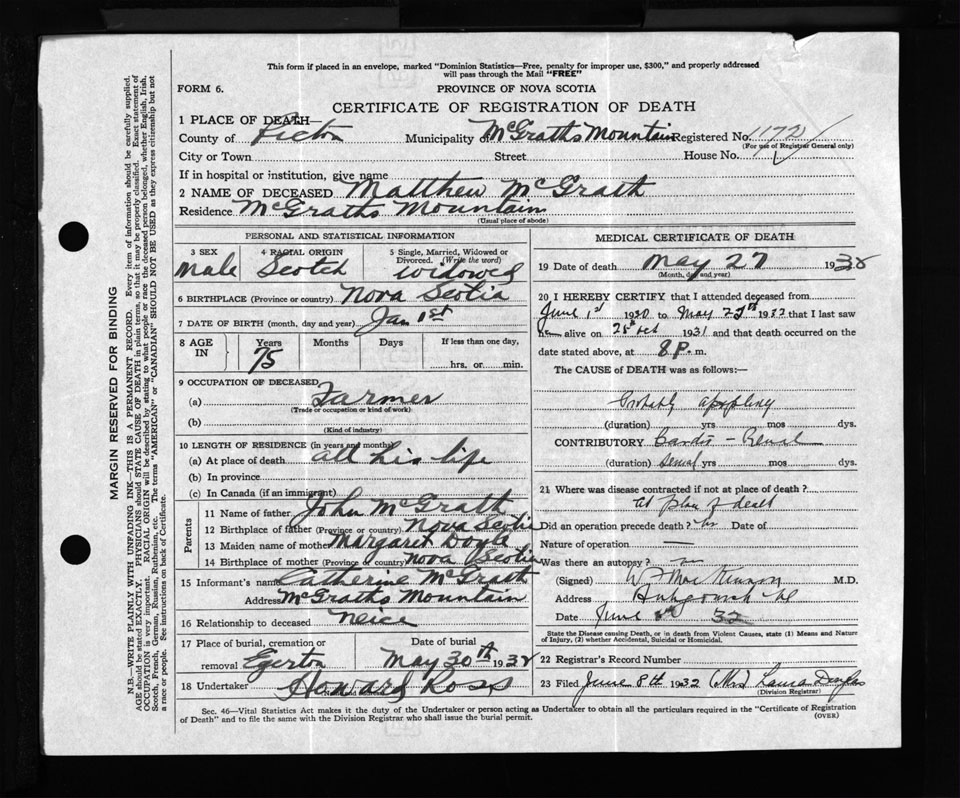 This form if placed in an envelope, marked "Dominion Statistics—Free, penalty for improper use, $300," and properly addressed
will pass through the Mail "FREE"
FORM 6. PROVINCE OF NOVA SCOTIA
CERTIFICATE OF REGISTRATION OF DEATH
1 PLACE OF DEATH—
County of Pictou Municipality of McGraths Mountain Registered No. 1172
(For use of Registrar General only)
City or Town Street House No.
If in hospital or institution, give name
2 NAME OF DECEASED Matthew McGrath
Residence McGraths Mountain
(Usual place of abode)
PERSONAL AND STATISTICAL INFORMATION
3 SEX 4 RACIAL ORIGIN 5 Single, Married, Widowed or
Divorced. (Write the word)
Male Scotch widowed
6 BIRTHPLACE (Province or country) Nova Scotia
7 DATE OF BIRTH (month, day and year) Jan 1st
8 AGE IN Years Months Days If less than one day,
75 hrs. or min.
9 OCCUPATION OF DECEASED
(a) Farmer
(Trade or occupation or kind of work)
(b)
(Kind of industry)
10 LENGTH OF RESIDENCE (in years and months)
(a) At place of death all his life
(b) In province
(c) In Canada (if an immigrant)
Parents
11 Name of father John McGrath
12 Birthplace of father (Province or country) Nova Scotia
13 Maiden name of mother Margaret Doyle
14 Birthplace of mother (Province or country) Nova Scotia
15 Informant's name Catherine McGrath
Address McGraths Mountain
16 Relationship to deceased Neice
17 Place of burial, cremation or Date of burial
removal Egerton May 30th 1932
18 Undertaker Howard Ross
MEDICAL CERTIFICATE OF DEATH
19 Date of death May 27 1932
(Month, day and year)
20 I HEREBY CERTIFY that I attended deceased from
June 1st 1930 to May 27th 1932 that I last saw
alive on 25th Oct 1931 and that death occurred on
date stated above, at 8 P. m.
The CAUSE of DEATH was as follows:—
Probably apoplexy
(duration) yrs mos dys.
CONTRIBUTORY Cardio - Renal
(duration) several yrs mos dys.
21 Where was disease contracted if not at place of death?
At place of death
Did an operation precede death? no Date of
Nature of operation —
Was there an autopsy? no
(Signed) M.D.
Address
Date June 32
State the Disease causing Death, or in death from Violent Causes, state (1) Means and Nature
of Injury, (2) whether Accidental, Suicidal or Homicidal.
22 Registrar's Record Number
23 Filed June 8th 1932 (Mrs) Laura Douglas
(Division Registrar)
Sec. 46—Vital Statistics Act makes it the duty of the Undertaker or person acting as Undertaker to obtain all the particulars required in the "Certificate of Registration
of Death" and to file the same with the Division Registrar who shall issue the burial permit. (OVER)
MARGIN RESERVED FOR BINDING
N.B.—WRITE PLAINLY WITH UNFADING INK—THIS IS A PERMANENT RECORD. Every item of information should be carefully supplied.
AGE should be stated EXACTLY. PHYSICIANS should STATE CAUSE OF DEATH in plain terms, so that it may be properly classified. Exact statement of
OCCUPATION is very important. RACIAL ORIGIN will be described by stating to what people or race the deceased person belonged, whether English, Irish,
Scotch, French, German, Russian, Ruthenian, etc. The terms "AMERICAN" or "CANADIAN" SHOULD NOT BE USED as they express citizenship but not
a race or people. See instructions on back of Certificate.